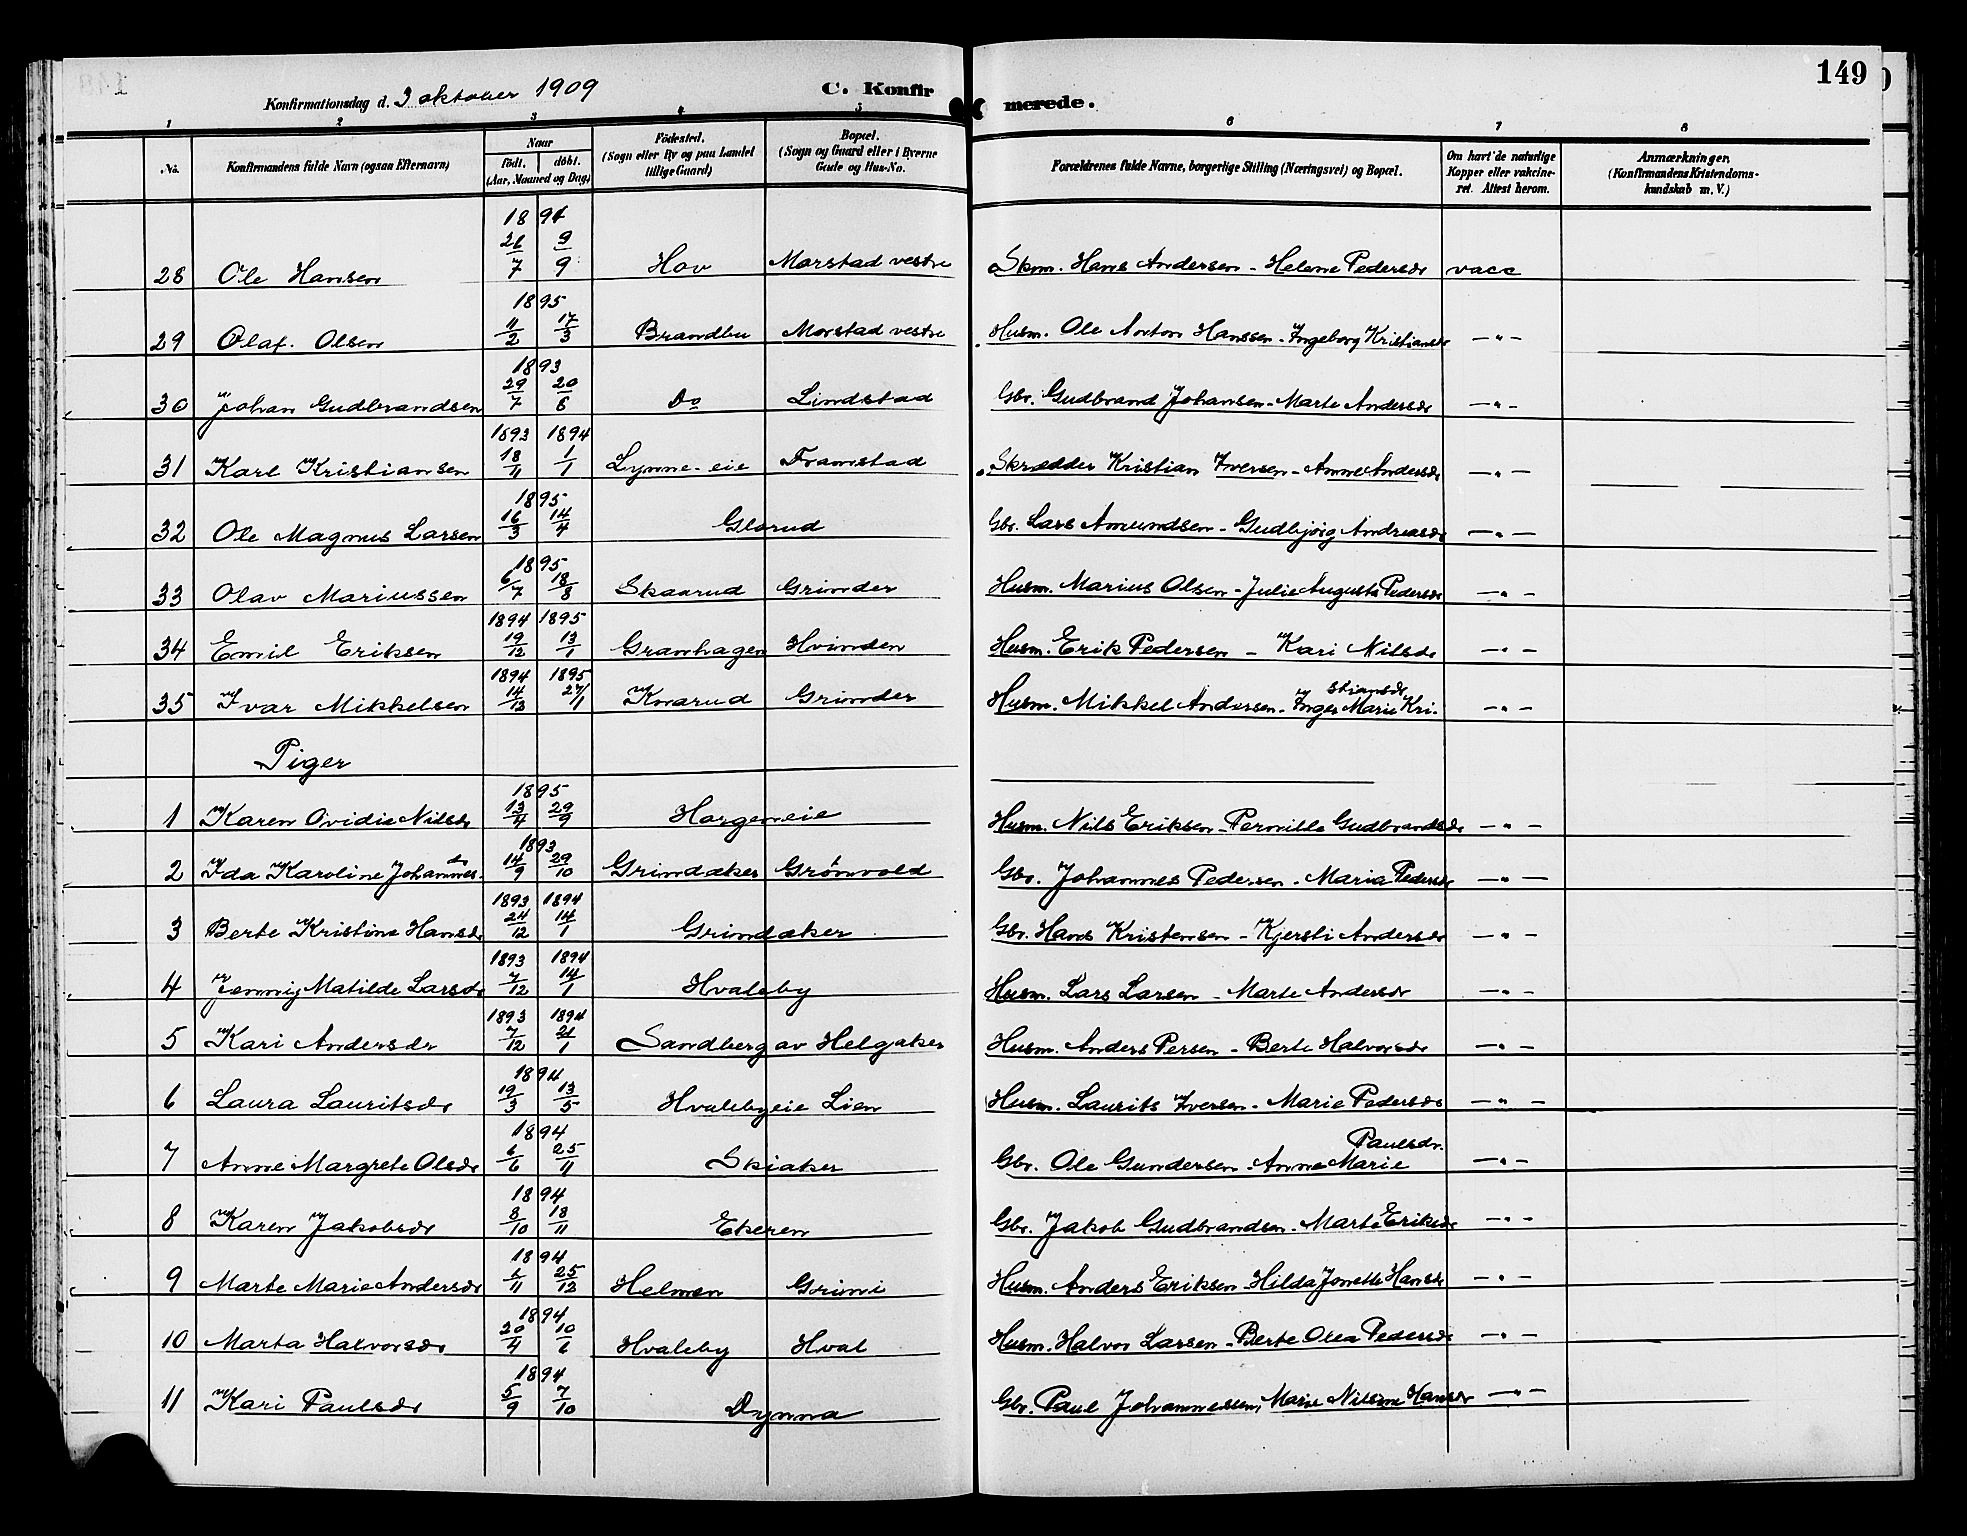 149
Konfirmationsdag d. 3 oktober 1909 C. Konfirmerede.
1 2 3 4 5 6 7 8
No. Konfirmandens fulde Navn (ogsaa Efternavn) Naar født, døbt. (Aar, Maaned og Dag) Fødested. (Sogn eller By og paa Landet tillige Gaard) Bopæl. (Sogn og Gaard eller i Byerne Gade og Hus-No. Forældrenes fulde Navne, borgerlige Stilling (Næringsvei) og Bopæl. Om havt de naturlige Kopper eller vakcineret. Attest herom. Anmærkninger. (Konfirmandens Kristendomskundskab m. V.)
28 Ole Hansen 1894 26/7 9/9 Hov Morstad vestre Skm. Hans Andersen - Helene Pedersdr vacc
29 Olaf Olsen 1895 11/2 17/3 Brandbu Morstad vestre Husm. Ole Anton Hanssen - Ingeborg Kristiansdr —"—
30 Johan Gudbrandsen 1893 29/7 20/8 Do Lindstad Gbr. Gudbrand Johansen - Marte Andersdr —"—
31 Karl Kristiansen 1893 18/11 1894 1/1 Lynne-eie Framstad Skrædder Kristian Iversen - Anne Andersdr —"—
32 Ole Magnus Larsen 1895 16/3 14/4 Glorud Gbr. Lars Amundsen - Gudbjørg Andreasdr —"—
33 Olav Mariussen 1895 6/7 18/8 Skaarud Grinder Husm. Marius Olsen - Julie Augusta Pedersdr —"—
34 Emil Eriksen 1894 19/12 1895 13/1 Granhagen Hvinden Husm. Erik Pedersen - Kari Nilsdr —"—
35 Ivar Mikkelsen 1894 14/13 1895 27/1 Knarud Grinder Husm. Mikkel Andersen - Inger Marie Kristiansdr —"—
Piger
1 Karen Ovidie Nilsdr 1895 13/4 29/9 Horgeneie Husm. Nils Eriksen - Pernille Gudbrandsdr —"—
2 Ida Karoline Johannesdr 1893 14/9 29/10 Grindaker Grønvold Gbr. Johannes Pedersen - Maria Pedersdr —"—
3 Berte Kristine Hansdr 1893 24/12 1894 14/1 Grindaker Gbr. Hans Kristensen - Kjersti Andersdr —"—
4 Jenny Matilde Larsdr 1893 7/12 1894 14/1 Hvaleby Husm. Lars Larsen - Marte Andersdr —"—
5 Kari Andersdr 1893 7/12 1894 21/1 Sandberg av Helgaker Husm. Anders Persen - Berte Halvorsdr —"—
6 Laura Lauritsdr 1894 19/3 13/5 Hvalebyeie Lien Husm. Laurits Iversen - Marie Pedersdr —"—
7 Anne Margrete Olsdr 1894 6/6 25/11 Skiaker Gbr. Ole Gundersen - Anne Marie Paulsdr. —"—
8 Karen Jakobsdr 1894 8/10 18/11 Ekeren Gbr. Jakob Gudbrandsen - Marte Eriksdr —"—
9 Marte Marie Andersdr 1894 /11 25/12 Helmen Grini Husm. Anders Eriksen - Hilda Jonette Hansdr —"—
10 Marta Halvorsdr 1894 20/4 10/6 Hvaleby Hval Husm. Halvor Larsen - Berte Olea Pedersdr —"—
11 Kari Paulsdr 1894 5/9 7/10 Dynna Gbr. Paul Johannessen, Marie Nilsine Hansdr —"—